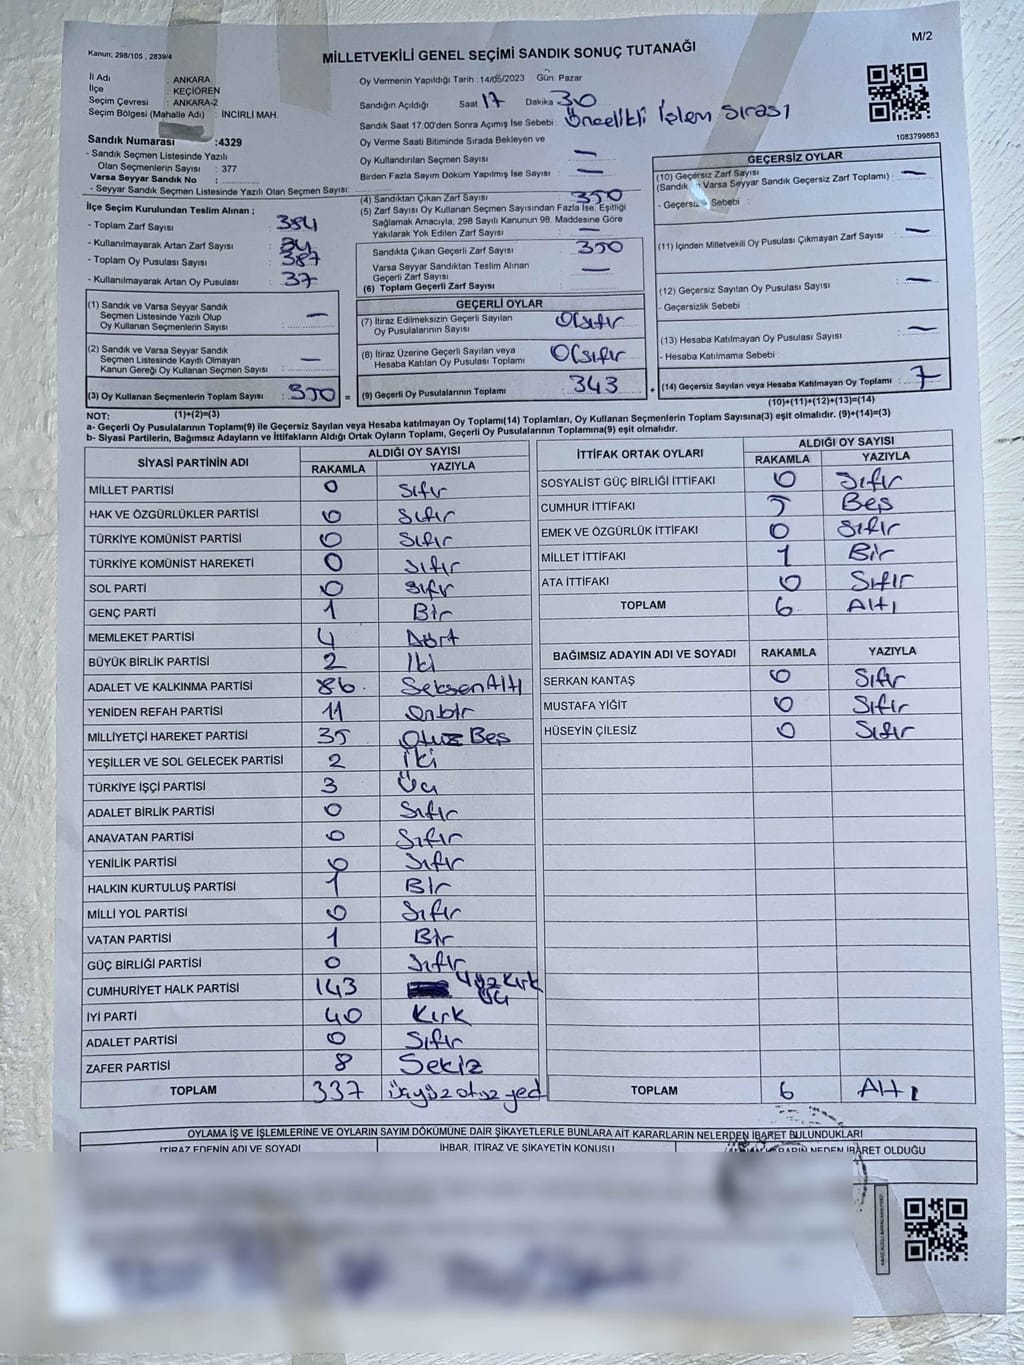 M/2
Kanun; 298/105 , 2839/4
MİLLETVEKİLİ GENEL SEÇİMİ SANDIK SONUÇ TUTANAĞI
1083799863
İl Adı : ANKARA
İlçe : KEÇİÖREN
Seçim Çevresi : ANKARA-2
Seçim Bölgesi (Mahalle Adı) : İNCİRLİ MAH.
Sandık Numarası :4329
- Sandık Seçmen Listesinde Yazılı
Olan Seçmenlerin Sayısı : 377
Varsa Seyyar Sandık No :
- Seyyar Sandık Seçmen Listesinde Yazılı Olan Seçmen Sayısı:
Oy Vermenin Yapıldığı Tarih : 14/05/2023 Gün: Pazar
Sandığın Açıldığı Saat 17 Dakika 30
Sandık Saat 17:00'den Sonra Açımış İse Sebebi: Öncelikli İşlem sırası
Oy Verme Saati Bitiminde Sırada Bekleyen ve
Oy Kullandırılan Seçmen Sayısı : —
Birden Fazla Sayım Döküm Yapılmış İse Sayısı : —
İlçe Seçim Kurulundan Teslim Alınan ;
- Toplam Zarf Sayısı : 384
- Kullanılmayarak Artan Zarf Sayısı : 34
- Toplam Oy Pusulası Sayısı : 387
- Kullanılmayarak Artan Oy Pusulası : 37
(1) Sandık ve Varsa Seyyar Sandık
Seçmen Listesinde Yazılı Olup
Oy Kullanan Seçmenlerin Sayısı : —
(2) Sandık ve Varsa Seyyar Sandık
Seçmen Listesinde Kayıtlı Olmayan
Kanun Gereği Oy Kullanan Seçmen Sayısı : —
(3) Oy Kullanan Seçmenlerin Toplam Sayısı : 350 =
(1)+(2)=(3)
(4) Sandıktan Çıkan Zarf Sayısı : 350
(5) Zarf Sayısı Oy Kullanan Seçmen Sayısından Fazla İse, Eşitliği
Sağlamak Amacıyla, 298 Sayılı Kanunun 98. Maddesine Göre
Yakılarak Yok Edilen Zarf Sayısı : —
Sandıkta Çıkan Geçerli Zarf Sayısı : 350
Varsa Seyyar Sandıktan Teslim Alınan
Geçerli Zarf Sayısı : —
(6) Toplam Geçerli Zarf Sayısı :
GEÇERLİ OYLAR
(7) İtiraz Edilmeksizin Geçerli Sayılan
Oy Pusulalarının Sayısı : 0(sıfır
(8) İtiraz Üzerine Geçerli Sayılan veya
Hesaba Katılan Oy Pusulası Toplamı : 0(sıfır
(9) Geçerli Oy Pusulalarının Toplamı : 343 +
GEÇERSİZ OYLAR
(10) Geçersiz Zarf Sayısı : —
(Sandık Varsa Seyyar Sandık Geçersiz Zarf Toplamı)
- Geçersiz Sebebi :
(11) İçinden Milletvekili Oy Pusulası Çıkmayan Zarf Sayısı : —
(12) Geçersiz Sayılan Oy Pusulası Sayısı : —
- Geçersizlik Sebebi :
(13) Hesaba Katılmayan Oy Pusulası Sayısı : —
- Hesaba Katılmama Sebebi :
(14) Geçersiz Sayılan veya Hesaba Katılmayan Oy Toplamı : 7
(10)+(11)+(12)+(13)=(14)
NOT:
a- Geçerli Oy Pusulalarının Toplamı(9) ile Geçersiz Sayılan veya Hesaba katılmayan Oy Toplamı(14) Toplamları, Oy Kullanan Seçmenlerin Toplam Sayısına(3) eşit olmalıdır. (9)+(14)=(3)
b- Siyasi Partilerin, Bağımsız Adayların ve İttifakların Aldığı Ortak Oyların Toplamı, Geçerli Oy Pusulalarının Toplamına(9) eşit olmalıdır.
SİYASİ PARTİNİN ADI ALDIĞI OY SAYISI
RAKAMLA YAZIYLA
MİLLET PARTİSİ 0 Sıfır
HAK VE ÖZGÜRLÜKLER PARTİSİ 0 Sıfır
TÜRKİYE KOMÜNİST PARTİSİ 0 Sıfır
TÜRKİYE KOMÜNİST HAREKETİ 0 Sıfır
SOL PARTİ 0 Sıfır
GENÇ PARTİ 1 Bir
MEMLEKET PARTİSİ 4 Dört
BÜYÜK BİRLİK PARTİSİ 2 İki
ADALET VE KALKINMA PARTİSİ 86 SeksenAltı
YENİDEN REFAH PARTİSİ 11 Onbir
MİLLİYETÇİ HAREKET PARTİSİ 35 Otuz Beş
YEŞİLLER VE SOL GELECEK PARTİSİ 2 İki
TÜRKİYE İŞÇİ PARTİSİ 3 Üç
ADALET BİRLİK PARTİSİ 0 Sıfır
ANAVATAN PARTİSİ 0 Sıfır
YENİLİK PARTİSİ 0 Sıfır
HALKIN KURTULUŞ PARTİSİ 1 Bir
MİLLİ YOL PARTİSİ 0 Sıfır
VATAN PARTİSİ 1 Bir
GÜÇ BİRLİĞİ PARTİSİ 0 Sıfır
CUMHURİYET HALK PARTİSİ 143 Yüz Kırk Üç
İYİ PARTİ 40 Kırk
ADALET PARTİSİ 0 Sıfır
ZAFER PARTİSİ 8 Sekiz
TOPLAM 337 üçyüz otuz yedi
İTTİFAK ORTAK OYLARI ALDIĞI OY SAYISI
RAKAMLA YAZIYLA
SOSYALİST GÜÇ BİRLİĞİ İTTİFAKI 0 Sıfır
CUMHUR İTTİFAKI 5 Beş
EMEK VE ÖZGÜRLÜK İTTİFAKI 0 Sıfır
MİLLET İTTİFAKI 1 Bir
ATA İTTİFAKI 0 Sıfır
TOPLAM 6 Altı
BAĞIMSIZ ADAYIN ADI VE SOYADI RAKAMLA YAZIYLA
SERKAN KANTAŞ 0 Sıfır
MUSTAFA YİĞİT 0 Sıfır
HÜSEYİN ÇİLESİZ 0 Sıfır
TOPLAM 6 Altı
OYLAMA İŞ VE İŞLEMLERİNE VE OYLARIN SAYIM DÖKÜMÜNE DAİR ŞİKAYETLERLE BUNLARA AİT KARARLARIN NELERDEN İBARET BULUNDUKLARI
İTİRAZ EDENİN ADI VE SOYADI İHBAR, İTİRAZ VE ŞİKAYETİN KONUSU KARARIN NEDEN İBARET OLDUĞU